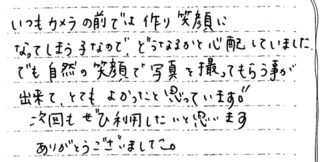 いつもカメラの前では作り笑顔に
なってしまう子なので、どうなるかと心配していました。
でも自然の笑顔で写真を撮ってもらう事が
出来て、とてもよかったと思っています!!
次回もぜひ利用したいと思います
ありがとうございました。